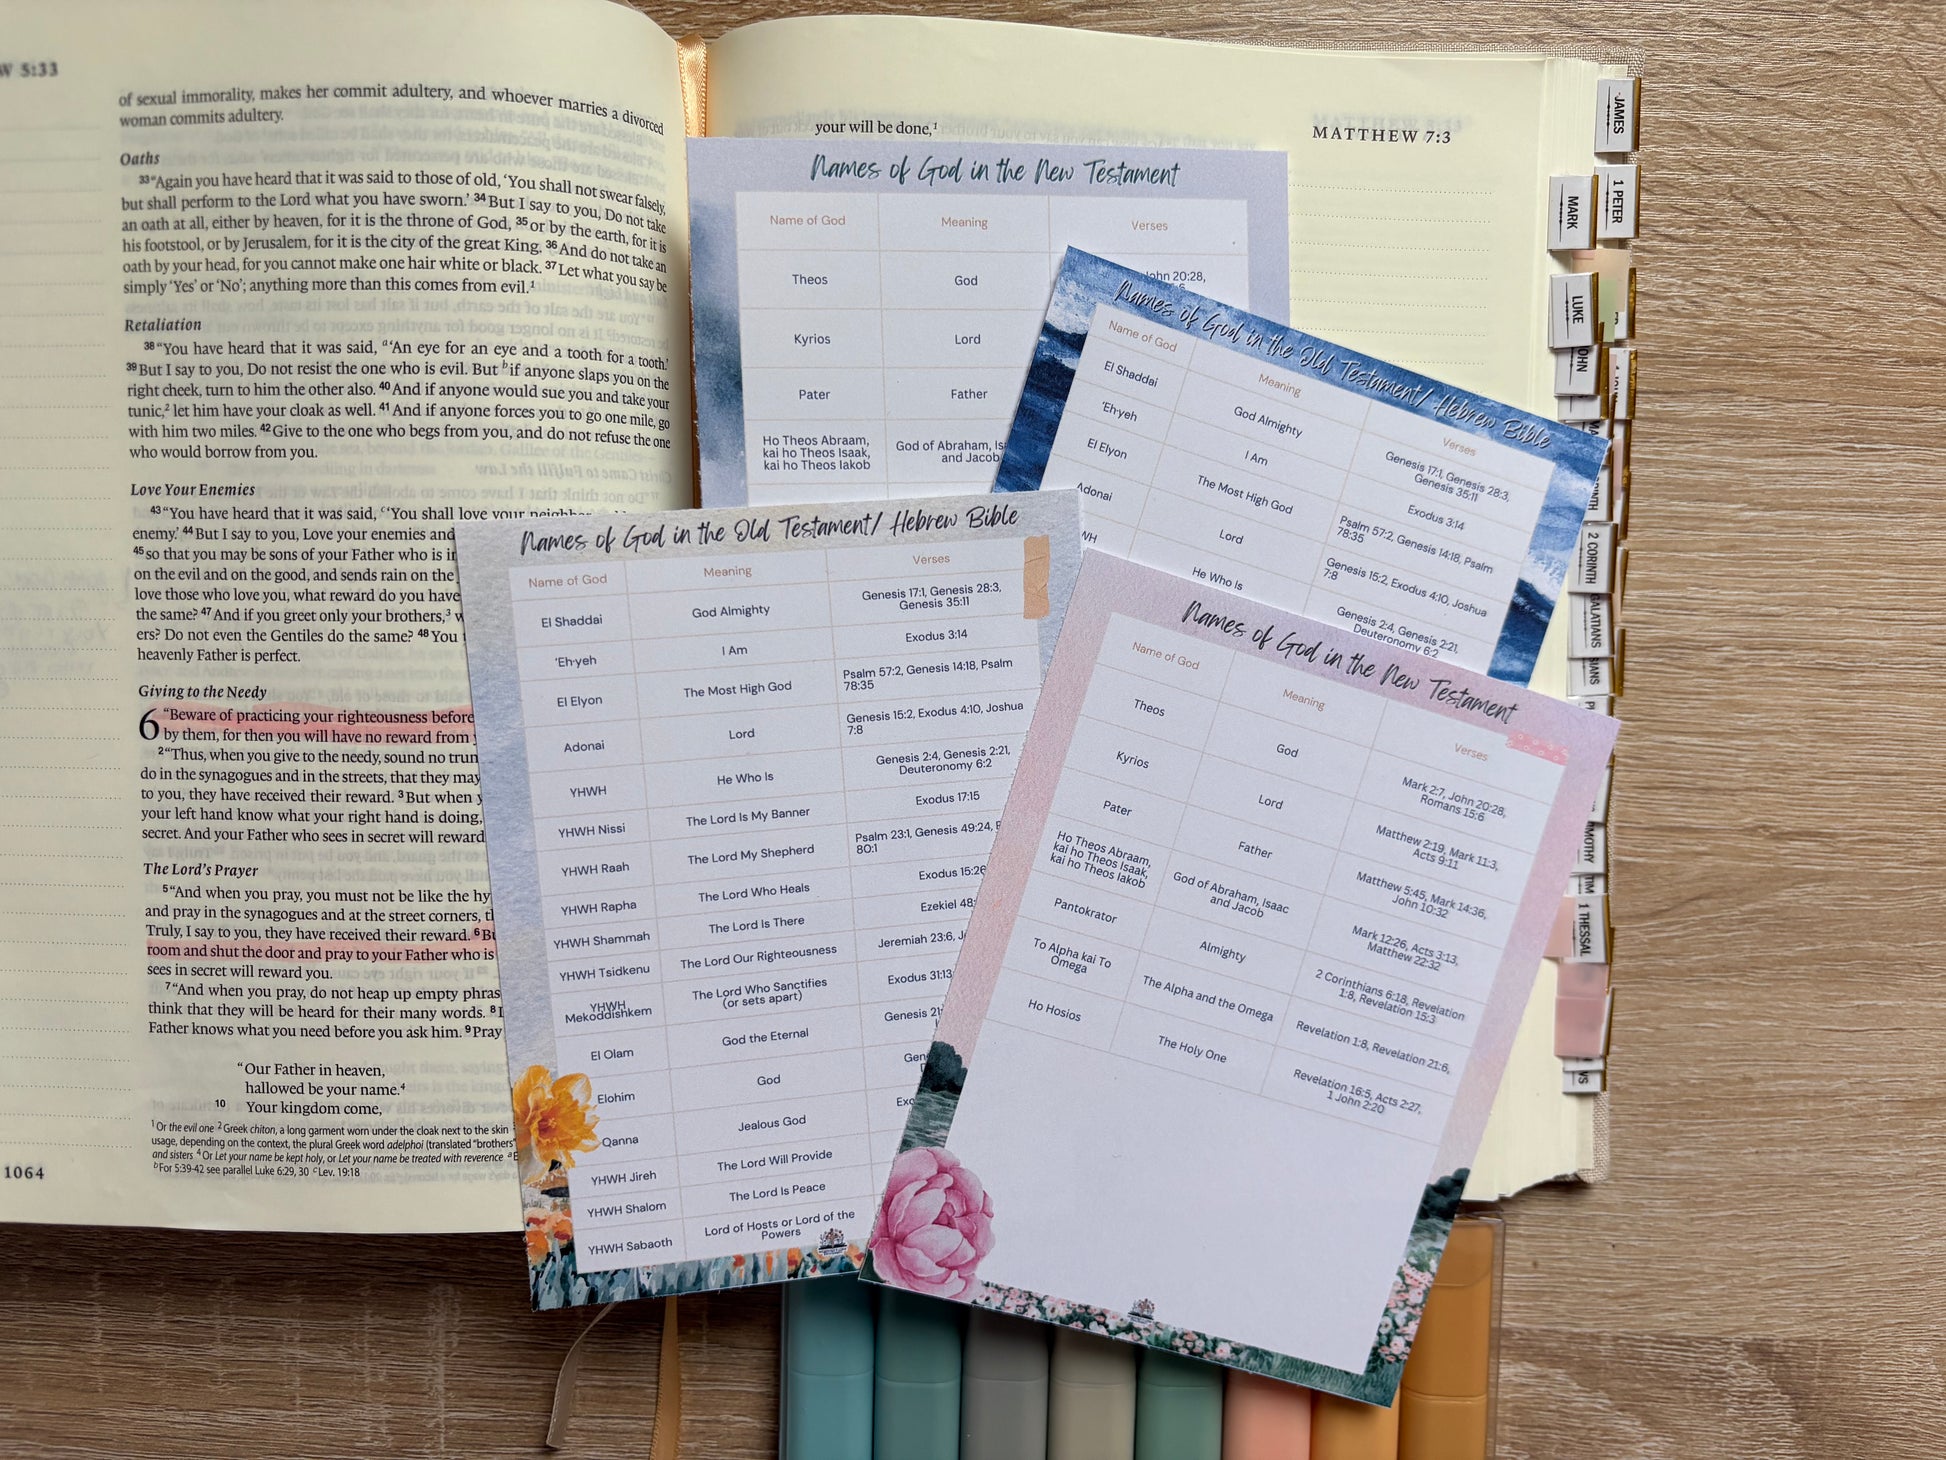 W 5:33
of sexual immorality, makes her commit adultery, and whoever marries a divorced
woman commits adultery.
Oaths
33 “Again you have heard that it was said to those of old, ‘You shall not swear falsely,
but shall perform to the Lord what you have sworn.’ 34 But I say to you, Do not take
an oath at all, either by heaven, for it is the throne of God, 35 or by the earth, for it is
his footstool, or by Jerusalem, for it is the city of the great King. 36 And do not take an
oath by your head, for you cannot make one hair white or black. 37 Let what you say be
simply ‘Yes’ or ‘No’; anything more than this comes from evil.1
Retaliation
38 “You have heard that it was said, a ‘An eye for an eye and a tooth for a tooth.’
39 But I say to you, Do not resist the one who is evil. But b if anyone slaps you on the
right cheek, turn to him the other also. 40 And if anyone would sue you and take your
tunic,2 let him have your cloak as well. 41 And if anyone forces you to go one mile, go
with him two miles. 42 Give to the one who begs from you, and do not refuse the one
who would borrow from you.
Love Your Enemies
43 “You have heard that it was said, c ‘You shall love your neighbor
enemy.’ 44 But I say to you, Love your enemies and
45 so that you may be sons of your Father who is in
on the evil and on the good, and sends rain on the
love those who love you, what reward do you have
the same? 47 And if you greet only your brothers,3
ers? Do not even the Gentiles do the same? 48 You
heavenly Father is perfect.
Giving to the Needy
6 “Beware of practicing your righteousness before
by them, for then you will have no reward from
2 “Thus, when you give to the needy, sound no trum
do in the synagogues and in the streets, that they may
to you, they have received their reward. 3 But when
your left hand know what your right hand is doing,
secret. And your Father who sees in secret will reward
The Lord’s Prayer
5 “And when you pray, you must not be like the hy
and pray in the synagogues and at the street corners, th
Truly, I say to you, they have received their reward. 6 Bu
room and shut the door and pray to your Father who is
sees in secret will reward you.
7 “And when you pray, do not heap up empty phras
think that they will be heard for their many words. 8
Father knows what you need before you ask him. 9 Pray
“Our Father in heaven,
hallowed be your name.4
10 Your kingdom come,
1 Or the evil one 2 Greek chiton, a long garment worn under the cloak next to the skin
usage, depending on the context, the plural Greek word adelphoi (translated “brothers”
and sisters 4 Or Let your name be kept holy, or Let your name be treated with reverence
b For 5:39-42 see parallel Luke 6:29, 30 c Lev. 19:18
1064
your will be done,1
MATTHEW 7:3
Names of God in the New Testament
Name of God Meaning Verses
Theos God John 20:28,
Kyrios Lord
Pater Father
Ho Theos Abraam,
kai ho Theos Isaak,
kai ho Theos Iakob
God of Abraham, Is
and Jacob
Names of God in the Old Testament/ Hebrew Bible
Name of God Meaning Verses
El Shaddai God Almighty Genesis 17:1, Genesis 28:3,
Genesis 35:11
'Eh·yeh I Am Exodus 3:14
El Elyon The Most High God Psalm 57:2, Genesis 14:18, Psalm
78:35
Adonai Lord Genesis 15:2, Exodus 4:10, Joshua
7:8
WH He Who Is Genesis 2:4, Genesis 2:21,
Deuteronomy 6:2
Names of God in the Old Testament/ Hebrew Bible
Name of God Meaning Verses
El Shaddai God Almighty Genesis 17:1, Genesis 28:3,
Genesis 35:11
'Eh·yeh I Am Exodus 3:14
El Elyon The Most High God Psalm 57:2, Genesis 14:18, Psalm
78:35
Adonai Lord Genesis 15:2, Exodus 4:10, Joshua
7:8
YHWH He Who Is Genesis 2:4, Genesis 2:21,
Deuteronomy 6:2
YHWH Nissi The Lord Is My Banner Exodus 17:15
YHWH Raah The Lord My Shepherd Psalm 23:1, Genesis 49:24,
80:1
YHWH Rapha The Lord Who Heals Exodus 15:26
YHWH Shammah The Lord Is There Ezekiel 48:
YHWH Tsidkenu The Lord Our Righteousness Jeremiah 23:6,
YHWH
Mekoddishkem
The Lord Who Sanctifies
(or sets apart)
Exodus 31:13
El Olam God the Eternal Genesis 21
Elohim God Gen
Qanna Jealous God Exo
YHWH Jireh The Lord Will Provide
YHWH Shalom The Lord Is Peace
YHWH Sabaoth Lord of Hosts or Lord of the
Powers
Names of God in the New Testament
Name of God Meaning Verses
Theos God Mark 2:7, John 20:28,
Romans 15:6
Kyrios Lord Matthew 2:19, Mark 11:3,
Acts 9:11
Pater Father Matthew 5:45, Mark 14:36,
John 10:32
Ho Theos Abraam,
kai ho Theos Isaak,
kai ho Theos Iakob
God of Abraham, Isaac
and Jacob
Mark 12:26, Acts 3:13,
Matthew 22:32
Pantokrator Almighty 2 Corinthians 6:18, Revelation
1:8, Revelation 15:3
To Alpha kai To
Omega
The Alpha and the Omega Revelation 1:8, Revelation 21:6,
Ho Hosios The Holy One Revelation 16:5, Acts 2:27,
1 John 2:20
JAMES
1 PETER
MARK
LUKE
OHN
2 CORINTH
GALATIANS
1 THESSAL